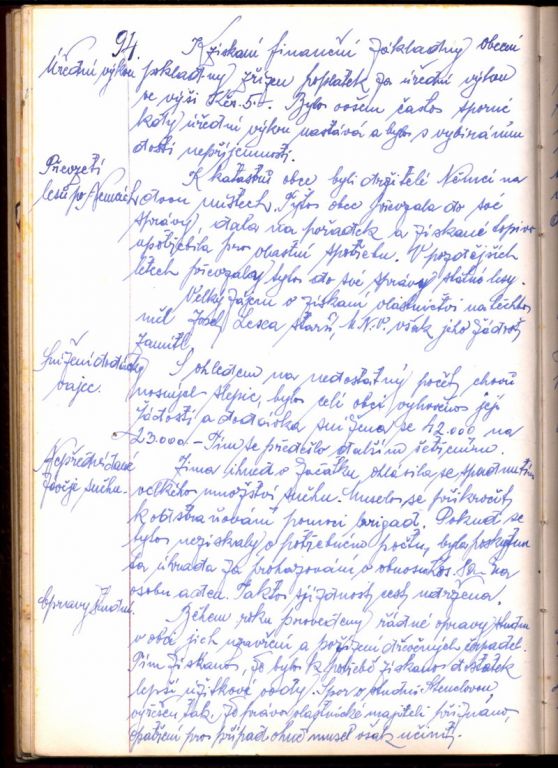 94.
Úřední výkon
K získání finanční základny obecní
pokladny zřízen poplatek za úřední výkon
ve výši Kčs 5.-. Bylo ovšem často sporné
kdy úřední výkon nastává a bylo s vybíráním
dosti nepříjemností.
Převzetí
lesů po Němcích
K katastru obce byli držitelé Němci na
dvou místech. Tyto obec převzala do své
správy, dala na pořádek a získané topivo
upotřebila pro vlastní spotřebu. V pozdějších
letech převzaly tyto do své správy státní lesy.
Velký zájem o získání vlastnictví na těchto
měl Josef Lesca starší, M.N.V. však jeho žádost
zamítl.
Snížení dodávky
vajec.
S ohledem na nedostatný počet chovu
nosných slepic, bylo celé obci vyhověno její
žádosti a dodávka snížena se 42.000 na
23.000.- Tím se předešlo dalším šetřením.
Nepředvídané
závěje sněhu.
Zima ihned o začátku, ohlásila se spadnutím
velkého množství sněhu. Muselo se přikročit
k odstraňování pomocí brigád. Pokud se
tyto nezískaly o potřebném počtu, byla poskytnu
ta úhrada za prohazování o obnosu Kčs 80.- na
osobu a den. Takto sjízdnost cest udržena.
Opravy studní.
Během roku provedeny řádné opravy studní
v obci jich uzavření a pořízení dřevěných čerpadel.
Tím získáno, že bylo k potřebě získáno dostatek
lepší užitkové vody. Spor o studni
vyřešen tak, že právo vlastnické majiteli přiznáno,
opatření pro případ ohně musel však učiniti.